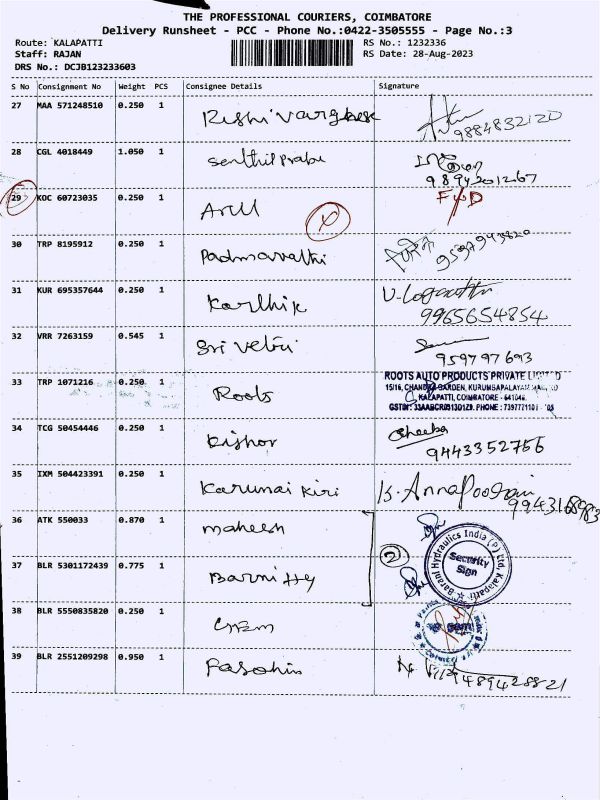 THE PROFESSIONAL COURIERS, COIMBATORE
Delivery Runsheet - PCC - Phone No.:0422-3505555 - Page No.:3
Route: KALAPATTI RS No.: 1232336
Staff: RAJAN RS Date: 28-Aug-2023
DRS No.: DCJB123233603
S No Consignment No Weight PCS Consignee Details Signature
27 MAA 571248510 0.250 1 Rishi Varghese
9884832120
28 CGL 4018449 1.050 1 Senthil prabu
9894201267
29 KOC 60723035 0.250 1 Arul
30 TRP 8195912 0.250 1 Padmavathi
31 KUR 695357644 0.250 1 Karthik
9965654854
32 VRR 7263159 0.545 1 Sri Vetri
959797693
33 TRP 1071216 0.250 1 Roots
ROOTS AUTO PRODUCTS PRIVATE
KALAPATTI, COIMBATORE
34 TCG 50454446 0.250 1 Kishor
9443352756
35 IXM 504423391 0.250 1 Karunai Kiri K. Annapoorani
36 ATK 550033 0.870 1 maheesh
2
Barani Hydraulics India (P) Ltd. Kalapatti
Security
Sign
37 BLR 5301172439 0.775 1
38 BLR 5550835820 0.250 1
39 BLR 2551209298 0.950 1
9489428821